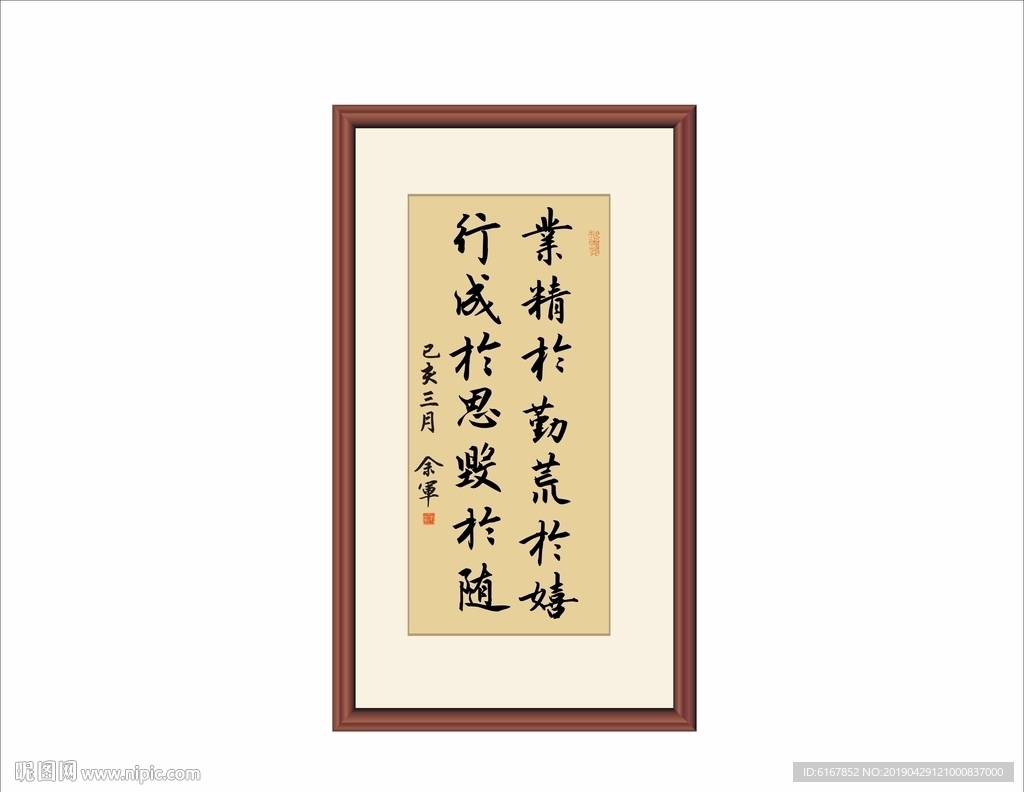 業精於勤荒於嬉
行成於思毀於随
己亥三月 余軍
昵图网 www.nipic.com
ID:6167852 NO:20190429121000837000